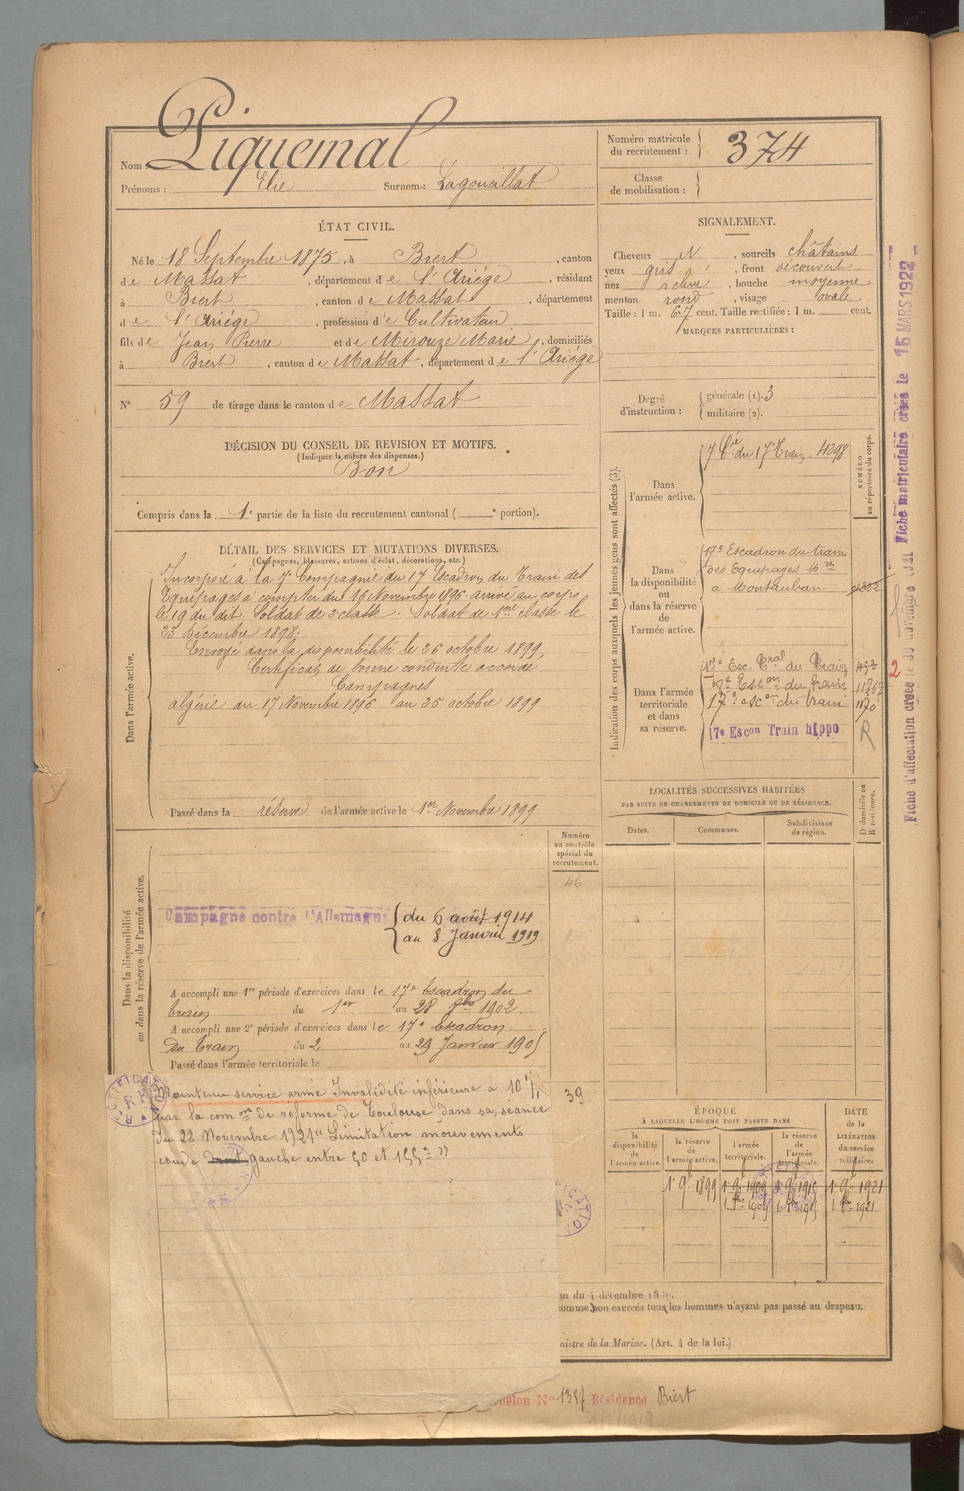 Nom : Piquemal
Prénoms : Elie Surnom : Lagouaillat
Numéro matricule du recrutement : 374
Classe de mobilisation :
ÉTAT CIVIL.
Né le 18 Septembre 1875, à Biert, canton
de Massat, département de l'Ariège, résidant
à Biert, canton de Massat, département
de l'Ariège, profession de Cultivateur
fils de Jean Pierre et de Mirouze Marie, domiciliés
à Biert, canton de Massat, département de l'Ariège
N° 59 de tirage dans le canton de Massat
DÉCISION DU CONSEIL DE REVISION ET MOTIFS.
(Indiquer la nature des dispenses.)
Bon
Compris dans la 1e partie de la liste du recrutement cantonal ( e portion).
SIGNALEMENT.
Cheveux N, sourcils châtains
yeux gris, front découvert
nez relevé, bouche moyenne
menton rond, visage ovale
Taille : 1 m. 67 cent. Taille rectifiée : 1 m. cent.
MARQUES PARTICULIÈRES :
Degré d'instruction : générale (1). 3
militaire (2).
DÉTAIL DES SERVICES ET MUTATIONS DIVERSES.
(Campagnes, blessures, actions d'éclat, décorations, etc.)
Dans l'armée active.
Incorporé à la 7e Compagnie du 17 Escadron du Train des
Equipages à compter du 16 Novembre 1896 arrivé au corps
le 19 du dit. Soldat de 2e classe. Soldat de 1ere classe le
25 Décembre 1898.
Envoyé dans la disponibilité le 26 octobre 1899,
Certificat de bonne conduite accordé
Campagnes
Algérie du 17 Novembre 1896 au 25 octobre 1899
Passé dans la réserve de l'armée active le 1er Novembre 1899
Indication des corps auxquels les jeunes gens sont affectés (3).
NUMÉRO au répertoire du corps.
Dans l'armée active.
7 Cie du 17e Train 4298
Dans la disponibilité ou dans la réserve de l'armée active.
17e Escadron du train
des Equipages Mres
à Montauban
Dans l'armée territoriale et dans sa réserve.
17e Esc. Tral du Train
17e Escon du train
17e escon du train
17e Escon Train hippo
R
Fiche d'affectation créée le 30 novembre Fiche matriculaire créée le 15 MARS 1922
2
LOCALITÉS SUCCESSIVES HABITÉES
PAR SUITE DE CHANGEMENTS DE DOMICILE OU DE RÉSIDENCE.
Dates.
Communes.
Subdivisions de région.
D domicile ou R résidence.
Dans la disponibilité ou dans la réserve de l'armée active.
Numéro au contrôle spécial du recrutement.
46
Campagne contre l'Allemagne du 6 août 1914
au 8 Janvier 1919
A accompli une 1re période d'exercices dans le 17e Escadron du
train du 1er au 28 1902
A accompli une 2e période d'exercices dans le 17e escadron
du Train du 2 au 29 Janvier 1905
Passé dans l'armée territoriale le
Maintenu service armé Invalidité inférieure à 10%
par la comon de réforme de Toulouse dans sa séance
du 22 Novembre 1921 "Limitation mouvements
coude gauche entre 50 et 155° "
39
ÉPOQUE
À LAQUELLE L'HOMME DOIT PASSER DANS
la disponibilité de l'armée active.
la réserve de l'armée active.
l'armée territoriale.
la réserve de l'armée territoriale.
DATE de la LIBÉRATION du service militaire.
on du 4 décembre
comme non exercés tous les hommes n'ayant pas passé au drapeau.
nistre de la Marine. (Art. 4 de la loi.)
elon No 1357 Résidence Biert
1/1/1919